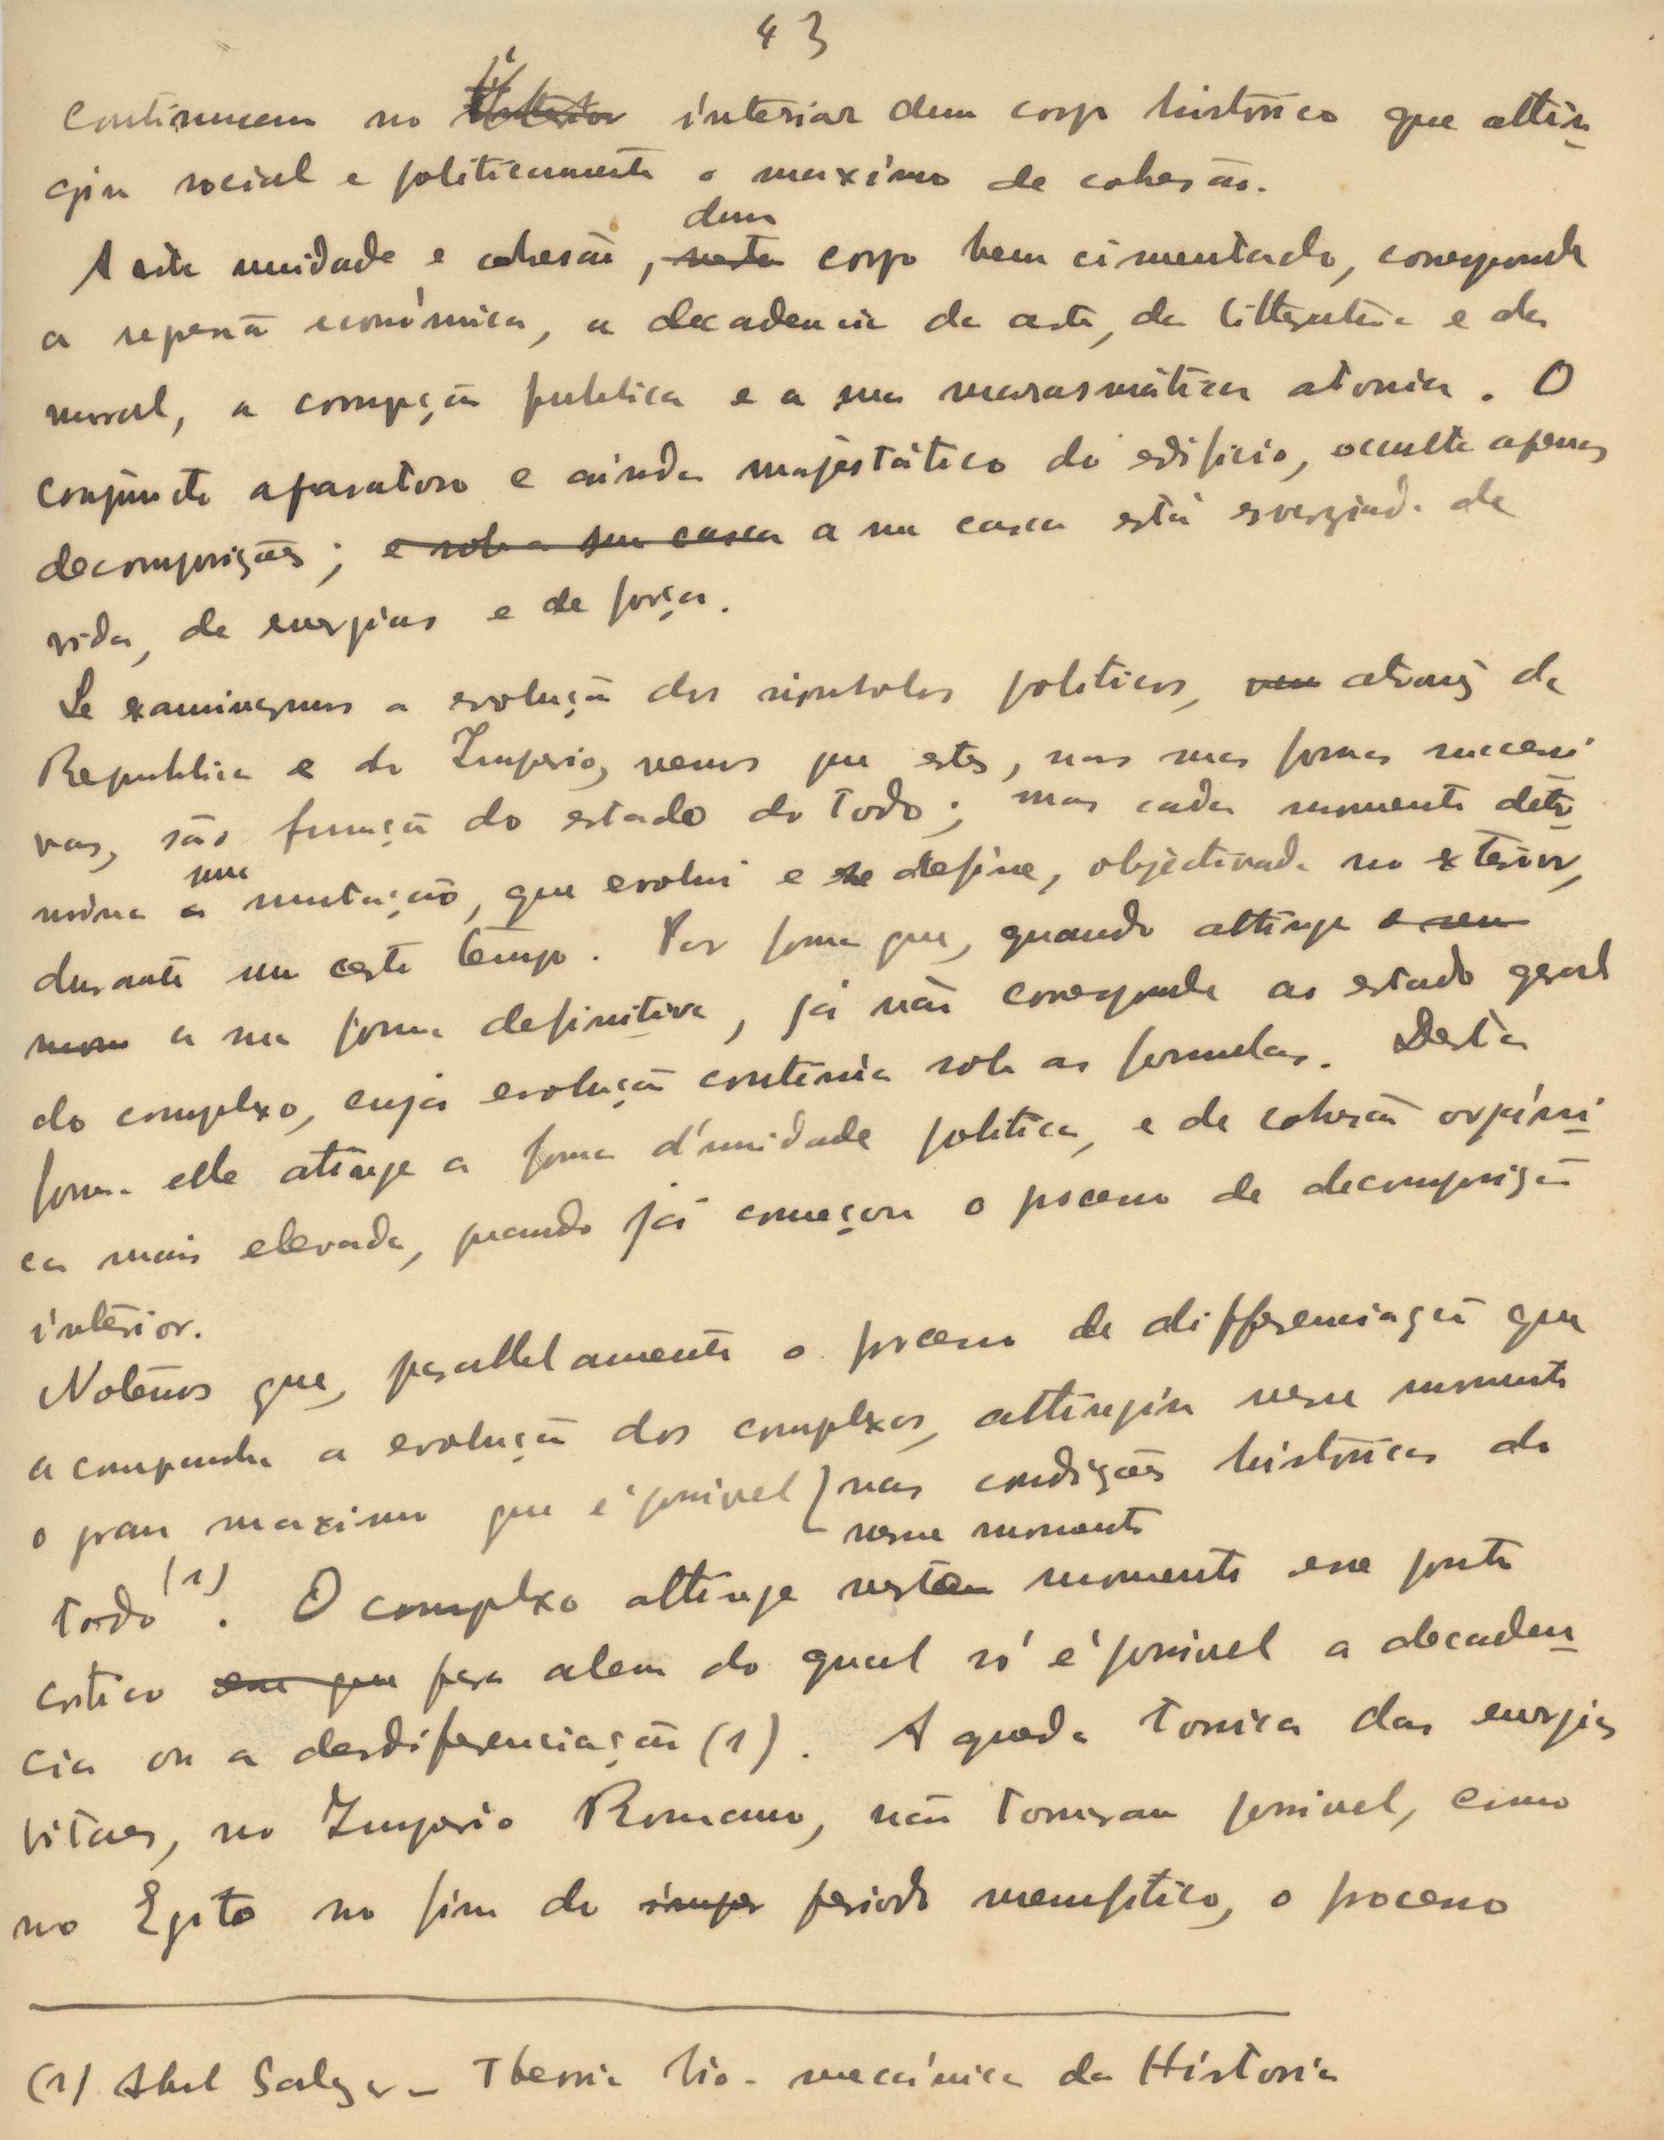 43
continuem no interior dum corpo historico que attin
giu social e politicamente o maximo de cohesão.
dum
A esta unidade e cohesão, nesta corpo bem cimentado, corresponde
a regressão económica, a decadencia da arte, da litteratura e da
moral, a corrupção publica e a sua marasmática atonia. O
conjuncto aparatoso e ainda majestático do edificio, occulta apenas
decomposições; e sob a sua casca a sua casca está esvaziada de
vida, de energias e de força.
Se examinarmos a evolução dos simbolos politicos, atravez da
Republica e do Imperio, vemos que estes, nas suas formas successi
vas, são função do estado do todo; mas cada momento deter
uma
mina a mutação, que evolui e se define, objectivada no exterior,
durante um certo tempo. Por forma que, quando attinge o seu
a sua forma definitiva, já não corresponde ao estado geral
do complexo, cuja evolução continúa sob as formulas. Desta
forma elle atinge a forma d'unidade politica, e de cohesão orgáni
ca mais elevada, quando já começou o processo de decomposição
intérior.
Notêmos que, parallelamente o processo de differenciação que
acompanha a evolução dos complexos, attingiu nesse momento
o grau maximo que é possivel nas condições históricas do
nesse momento
todo (1). O complexo attinge neste momento esse ponto
critico em que para alem do qual só é possivel a decaden
cia ou a desdiferenciação (1). A queda tonica das energias
vitaes, no Imperio Romano, não tornaram possivel, como
no Egito no fim do imper periodo memfitico, o processo
(1) Abel Salazar - Theoria bio-mecánica da Historia